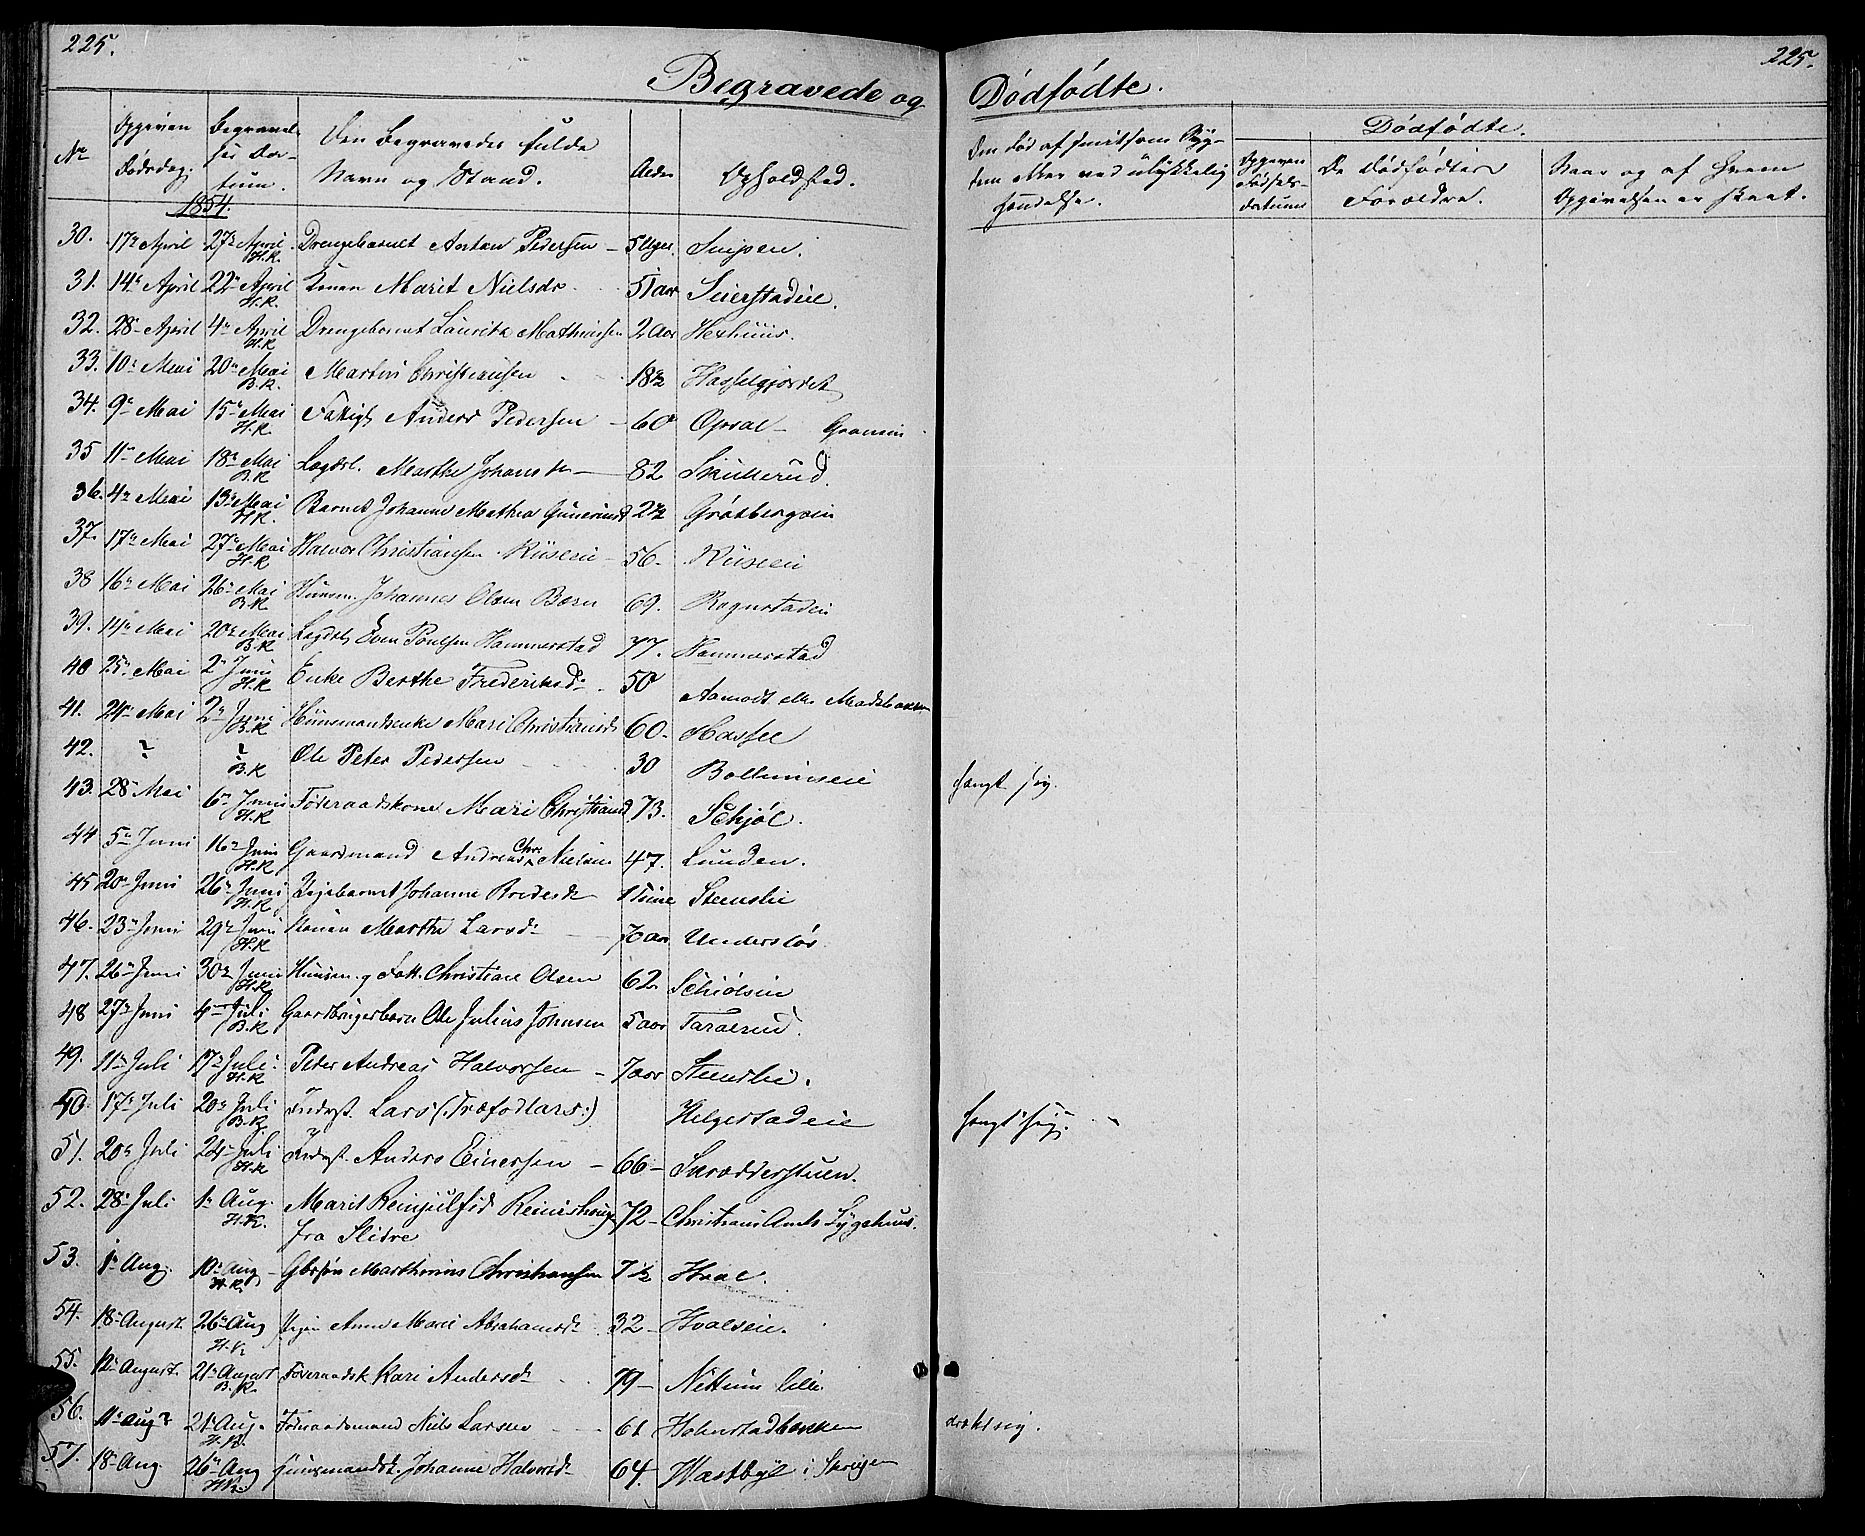 225.
225.
Begravede og Dødfødte.
No
Opgiven Dødsdag.
Begravelses Datum.
Den Begravedes fulde Navn og Stand.
Alder
Opholdsted.
Om død af smitsom Sygdom eller ved ulykkelig Hændelse.
Dødfødte.
Opgiven Fødsels-datum
De Dødfødtes Forældre.
Naar og af hvem Opgivelsen er skeet.
1854.
30. 17de April 27de April H.K. Drengebarnet Anton Pedersen 5 Uger. Snipen.
31. 14de April 22de April H.K. Konen Marit Nielsdr 51 aar Seierstadeie.
32. 28de April 4de April H.K. Drengebarnet Lauritz Mathiasen 2 Aar Hexhuus.
33. 10de Mai 20de Mai B.K. Martin Christiansen 18½ Hasselgjordet
34. 9de Mai 15de Mai H.K. Fattigl. Anders Pedersen 60 Opsal Granum
35 11te Mai 18de Mai B.K Lægdsl. Marthe Johansdr 82 Skukerud.
36. 4de Mai 13de Mai H.K. Barnet Johanne Mathea Gunerius 2½ Grødbergeie
37. 17de Mai 27de Mai H.K Halvor Christiansen Riiseeie 56. Riiseeie
38 16de Mai 26de Mai B.K Huusm. Johannes Olsen Børn 69. Rognstadeie
39. 14de Mai 20de Mai B.K Lægdsl. Even Poulsen Hammerstad 77. Hammerstad
40 25de Mai 2de Juni H.K Enke Berthe Frederiksd. 50 Aamodt eller Madsbakken
41. 24de Mai 2de Juni B.K Huusmandsenke Mari Christiansd 60. Hassel
42. ? ? B.K Ole Peter Pedersen 30 Bolluniseie hængt sig.
43. 28de Mai 6te Juni H.K Føderaadskone Mari Christiansd 73. Schjøl.
44 5te Juni 16de Juni H.K Gaardmand Andreas Chr. Nielsen 47. Lunden.
45 20de Juni 26de Juni H.K Pigebarnet Johanne Bredesdr 1 Time Steenslie
46. 23de Juni 29de Juni H.K Konen Marthe Larsd. 70 aar Understøs.
47. 26de Juni 30de Juni H.K Huusm. og Fatt. Christian Olsen 62. Schiølseie
48 27de Juni 4de Juli B.K Gaardbrugerbarn Ole Julius Johnsen 5 aar Taralrud.
49. 11te Juli 17de Juli H.K Peder Andreas Halvorsen 7 aar Steenslie.
50. 17de Juli 20de Juli B.K Inderst. Lars (:Træfodlars:) Helgestadeie hængt sig.
51. 20de Juli 24de Juli H.K Inderst. Anders Einersen 66 Skrædderstuen.
52. 28de Juli 1ste Aug. H.K. Marit Reinjulfsd Reinishouge fra Slidre 72 Christians Amts Sygehuus.
53. 1ste Aug. 10de Aug H.K. Gbrsøn Marthinius Christiansen 7½ Hval.
54. 18de August 26de Aug H.K Pigen Anne Marie Abrahamsd 32 Hvalseie.
55. 12te August. 21de August B.K. Føderaadsk Kari Andersd 79 Nettum lille
56. 11te Aug? 21de Aug. H.K. Føderaadsmand Niels Larsen 61 Holmstadbakken dræbt sig.
57. 18de Aug. 26de Aug H.K. Huusmandsk. Johanne Halvorsd 64 Wæstbye i Skougen